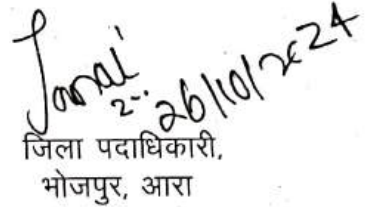 26/10/2024
जिला पदाधिकारी,
भोजपुर, आरा